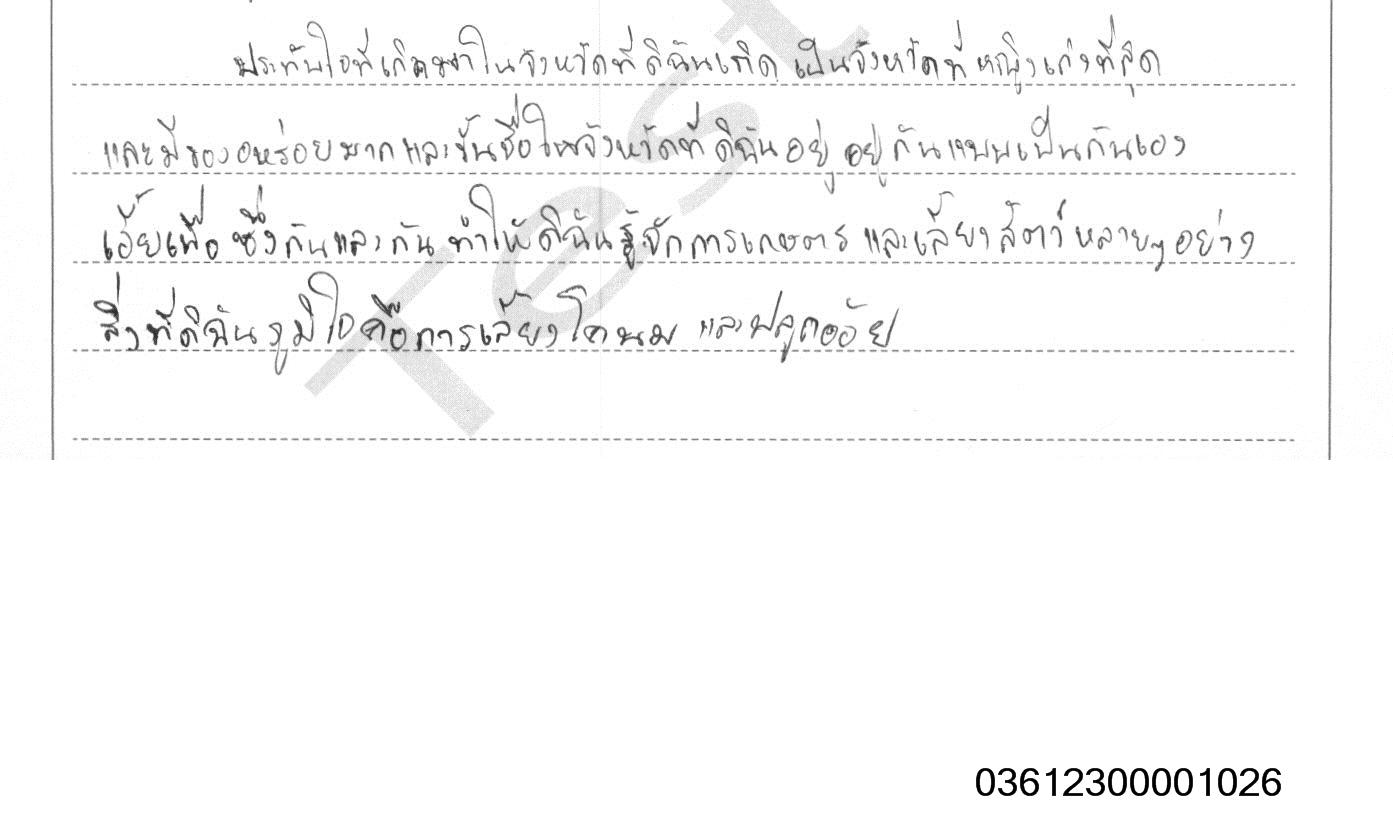 ประทับใจที่เกิดมาในจังหวัดที่ดิฉันเกิด เป็นจังหวัดที่หญิงเก่งที่สุด
และมีของอหร่อยมากและขึ้นชื่อในจังหวัดที่ดิฉันอยู่ อยู่กันแบบเป็นกันเอง
เอื้อยเฟื้อ ซึ่งกันและกัน ทำให้ดิฉันรู้จักการเกษตร และเลี้ยงสัตว์หลายๆอย่าง
สิ่งที่ดิฉันภูมิใจคือการเลี้ยงโคนม และปลูกออ้ย
Test
03612300001026